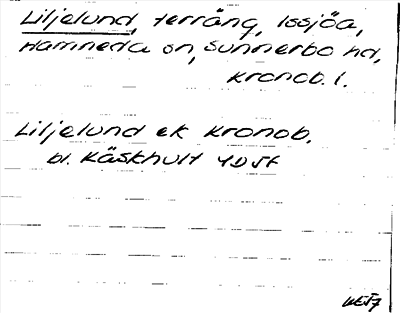 Liljelund, terräng, Issjöa,
Hamneda sn, Sunnerbo hd,
Kronob. l.
Liljelund ek Kronob.
bl. Käskhult 4D5f